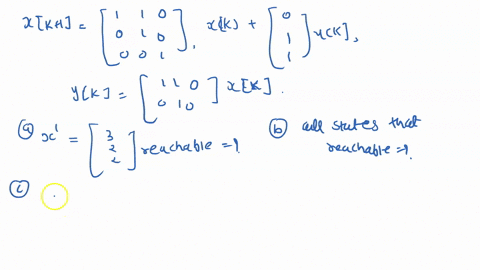 x[k+1] = [1 1 0; 0 1 0; 0 0 1], x(k) + [0; 1; 1] u[k],
y[k] = [1 1 0; 0 1 0] x[k].
(a) x' = [3; 2; 2] reachable =?. (b) all states that
reachable =?.
(c)